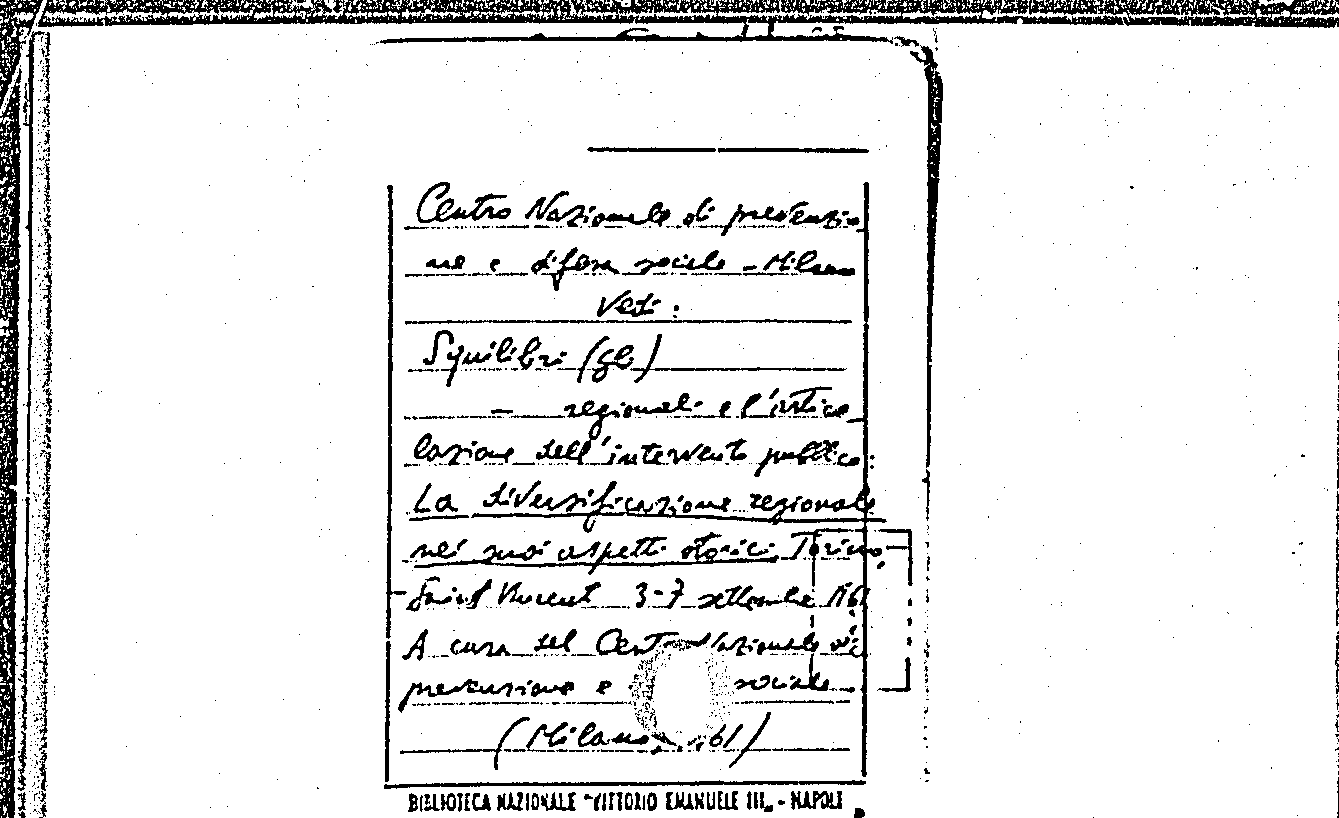 Centro Nazionale di prevenzio
ne e difesa sociale - Milano
Vedi:
Squilibri (gli)
— regionali e l'artico
lazione dell'intervento pubblico:
La diversificazione regionale
nei suoi aspetti storici. Torino,
Saint Vincent 3-7 settembre 1961
A cura del Centro Nazionale di
prevenzione e sociale
(Milano, 1961)
BIBLIOTECA NAZIONALE "VITTORIO EMANUELE III„ - NAPOLI